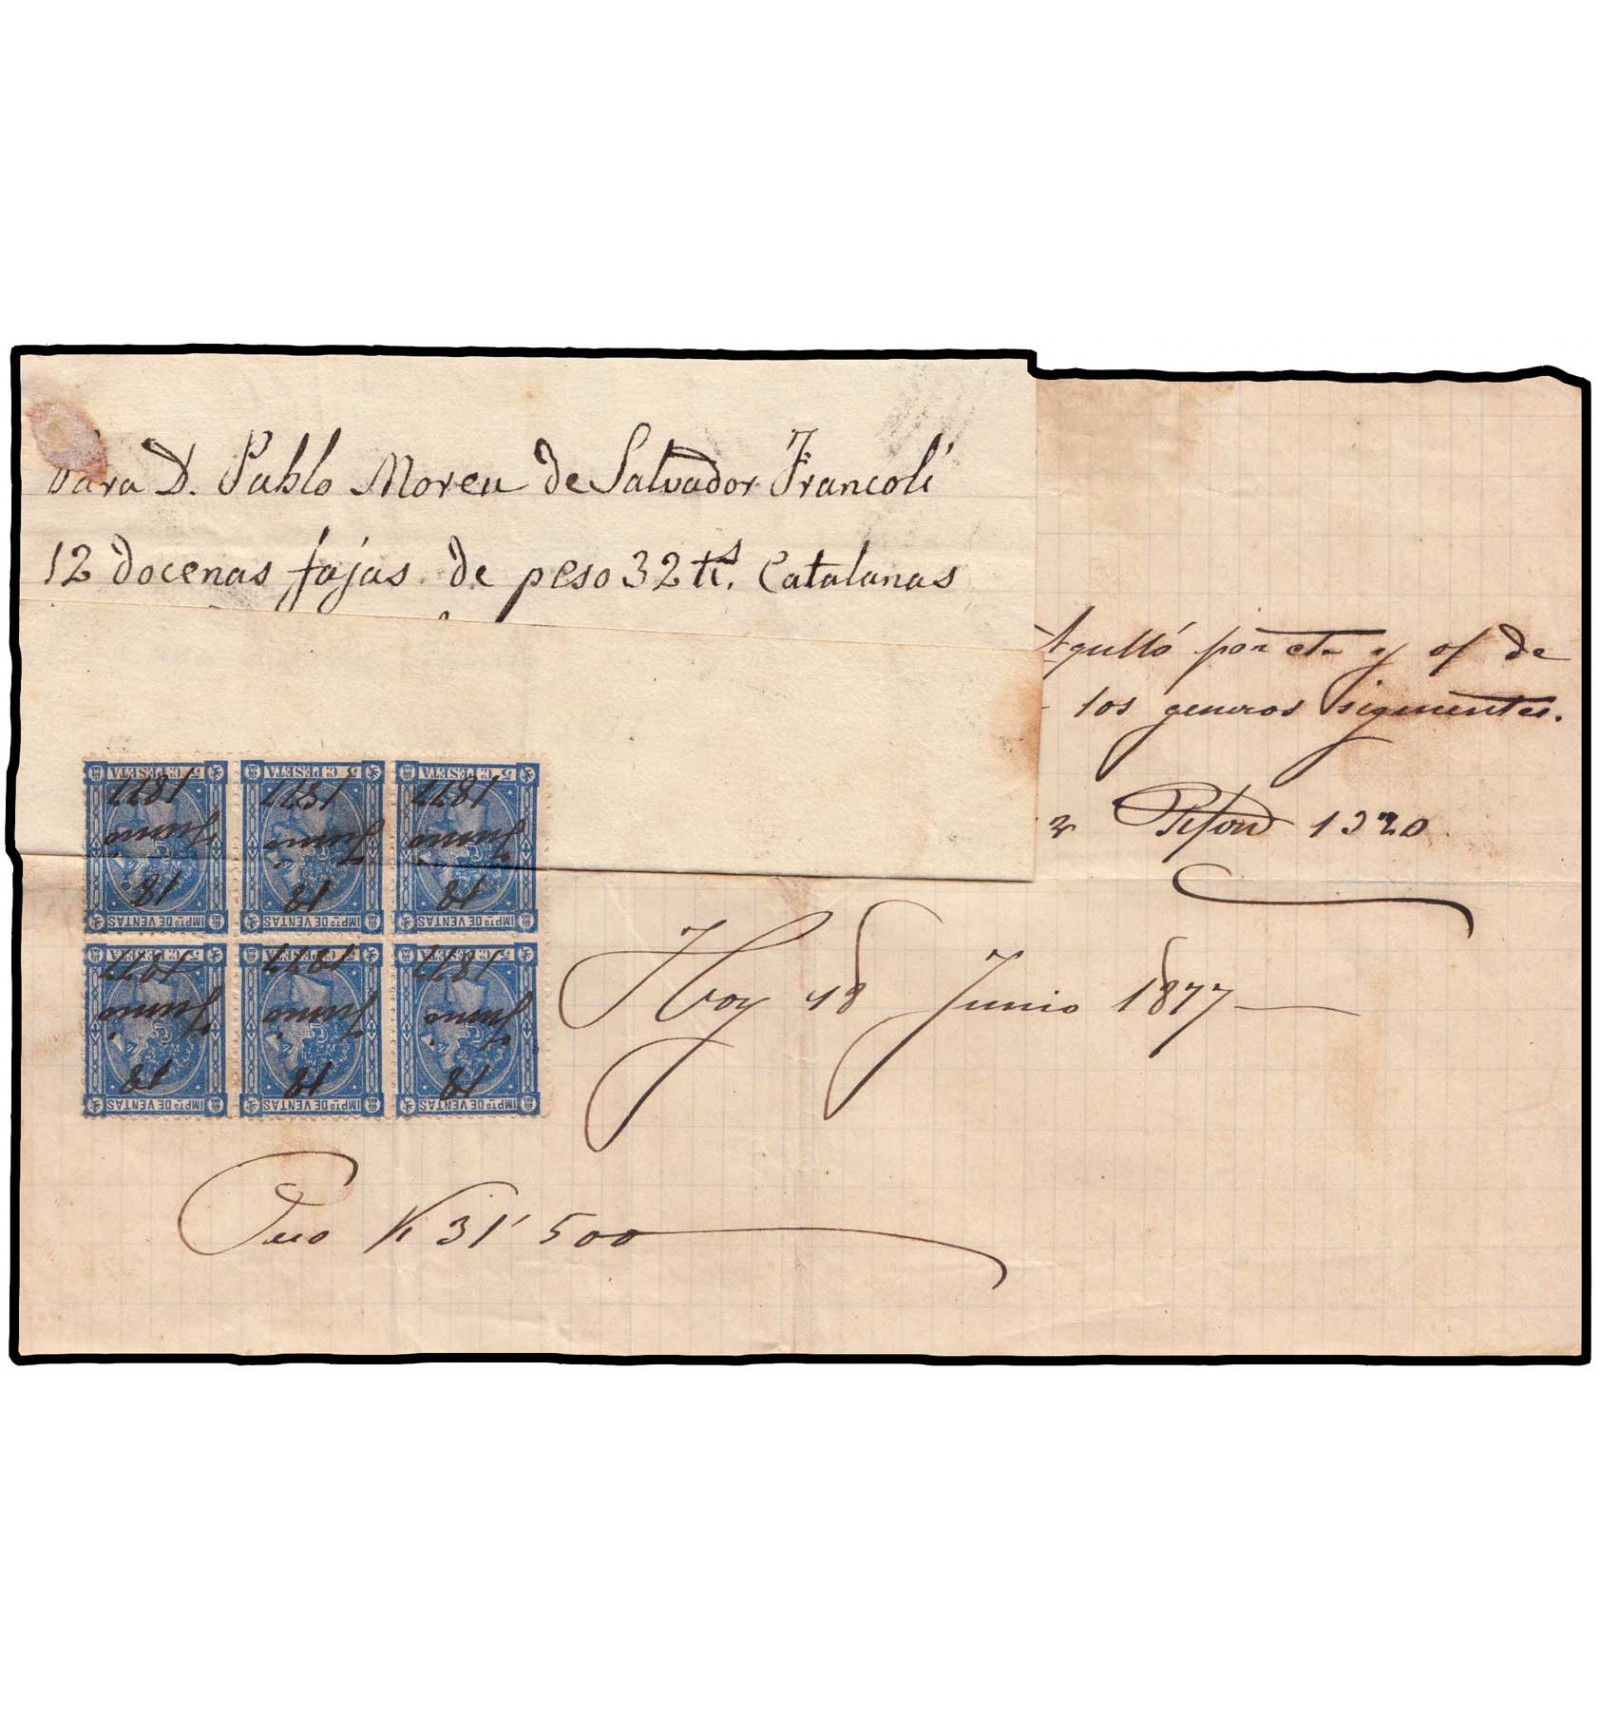 Para D. Pablo Moreu de Salvador Francolí
12 docenas fajas de peso 32 ts. Catalanas
Agulló por cta y o/ de
los generos siguientes.
1320
5 C. PESETA 5 C. PESETA 5 C. PESETA
18 Junio 1877 18 Junio 1877 18 Junio 1877
IMPTO DE VENTAS IMPTO DE VENTAS IMPTO DE VENTAS
5 C. PESETA 5 C. PESETA 5 C. PESETA
18 Junio 1877 18 Junio 1877 18 Junio 1877
IMPTO DE VENTAS IMPTO DE VENTAS IMPTO DE VENTAS
Hoy 18 Junio 1877
Peso K 31'500